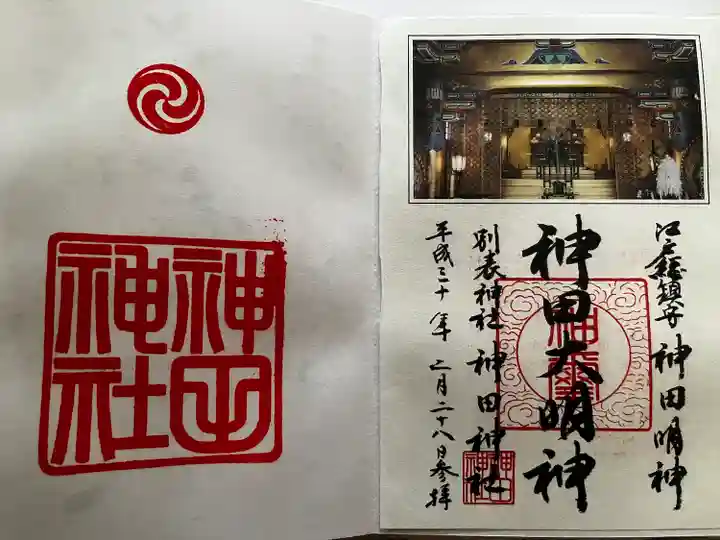 江戸総鎮守 神田明神
神田大明神
別表神社 神田神社
平成三十年 二月二十八日参拝
神田
神社
神田
神社